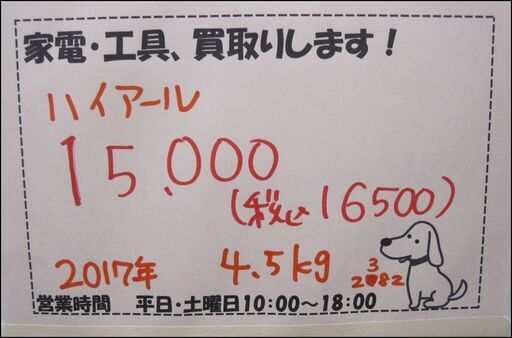 家電・工具、買取りします!
ハイアール
15,000
(税込16500)
2017年 4.5kg
3
2882
営業時間 平日・土曜日10:00～18:00